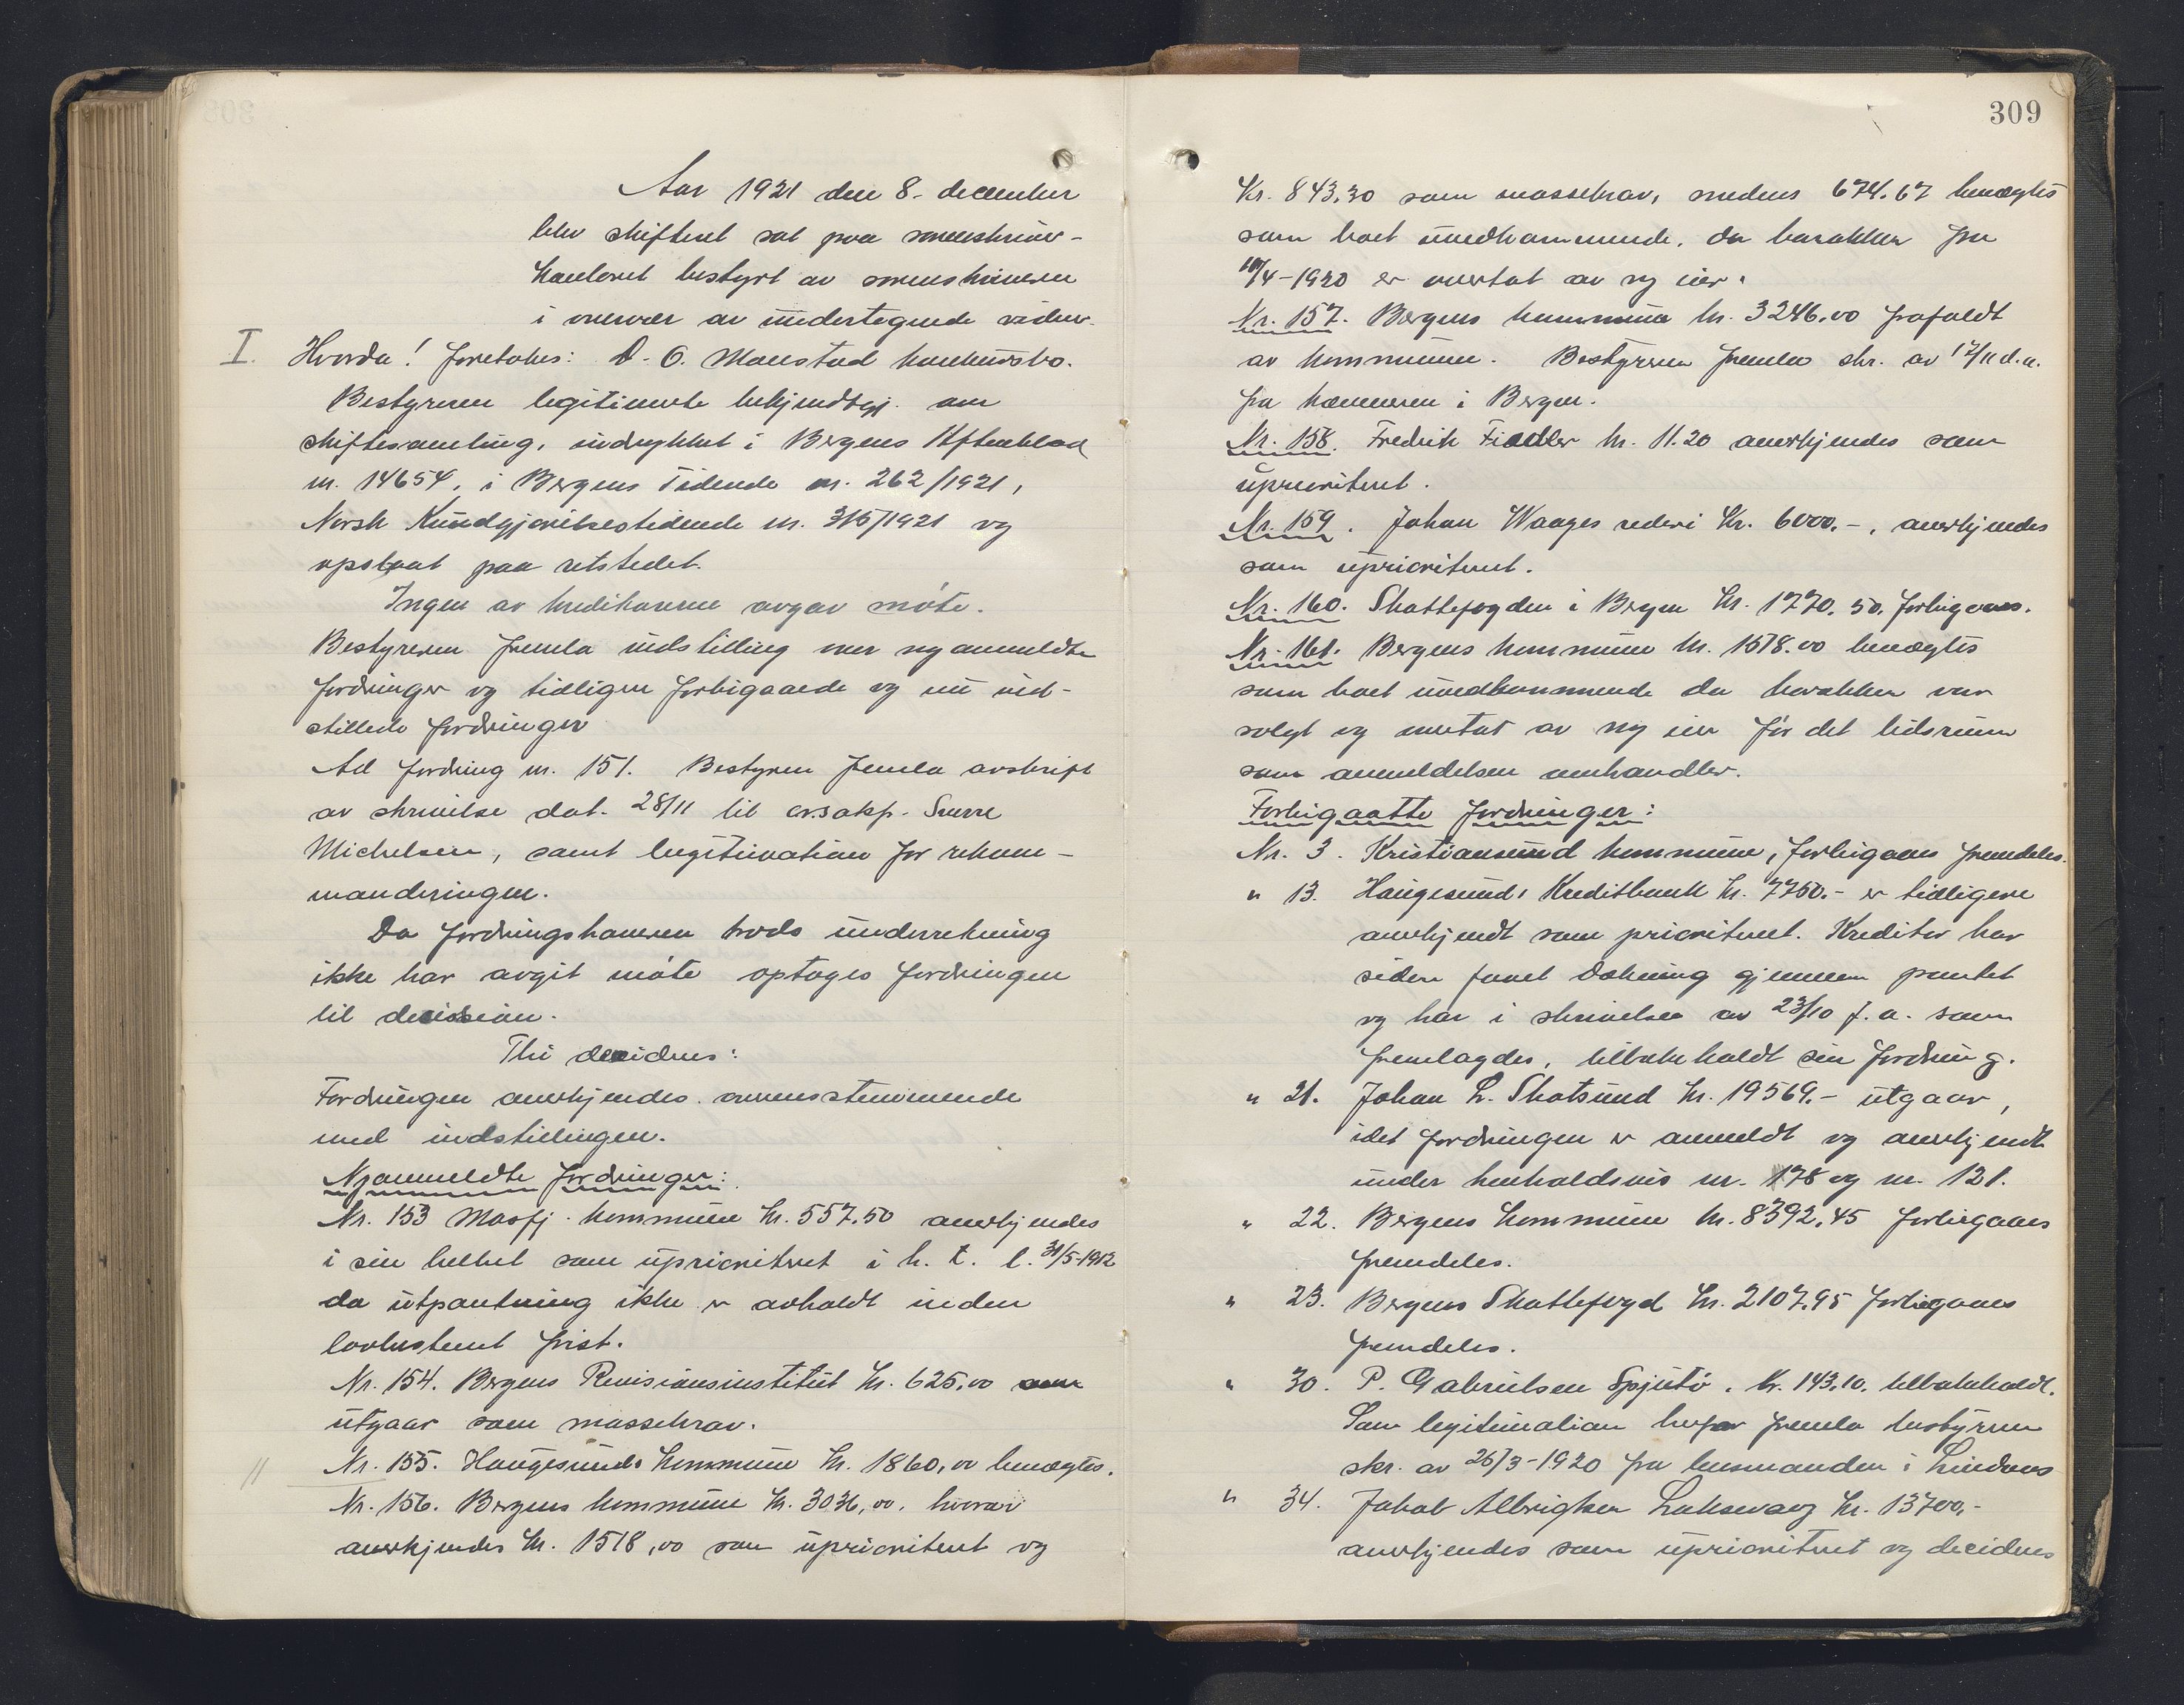 Aar 1921 den 8. december
blev skifteret sat paa sorenskriver-
kontoret bestyrt av sorenskriveren
i overvær av undertegnede vidner.
I. Hvorda! foretokes: D. O. Monstad konkursbo.
Bestyreren legitimerte bekjendtgj. om
skiftesamling, indrykket i Bergens Aftenblad
nr. 14654, i Bergens Tidende nr. 262/1921,
Norsk Kundgjørelsestidende nr. 315/1921 og
opslaat paa retstedet.
Ingen av kreditorerne avgav møte.
Bestyreren fremla indstilling over nyanmeldte
fordringer og tidligere forbigaaede og nu ind-
stillede fordringer
Ad fordring nr. 151. Bestyreren fremla avskrift
av skrivelse dat. 28/11 til o.r.sakf. Sverre
Michelsen, samt legitimation for rekom-
manderingen.
Da fordringshaveren trods underretning
ikke har avgit møte optoges fordringen
til decission.
Thi decideres:
Fordringen anerkjendes overensstemmende
med indstillingen.
Nyanmeldte fordringer:
Nr. 153 Masfj. kommune kr. 557.50 anerkjendes
i sin helhet som uprioritert i h. t. l. 31/5-1912
da utpantning ikke er avholdt inden
lovbestemt frist.
Nr. 154. Bergens Revisionsinstitut kr. 625,00
utgaar som massekrav.
Nr. 155. Haugesunds kommune kr. 1860,00 benegtes.
Nr. 156. Bergens kommune kr. 3036,00, hvorav
anerkjendes kr. 1518,00 som uprioritert og
309
Kr. 843,30 som massekrav, medens 674.67 benegtes
som boet uvedkommende, da barakken fra
10/4-1920 er overtat av ny eier.
Nr. 157. Bergens kommune kr. 3246,00 frafaldt
av kommunen. Bestyreren fremla skr. av 17/11 d.a.
fra kæmneren i Bergen.
Nr. 158. Fredrik Fiedler kr. 11.20 anerkjendes som
uprioritert.
Nr. 159. Johan Waages rederi Kr. 6000.-, anerkjendes
som uprioritert.
Nr. 160. Skattefogden i Bergen kr. 1770,50, forbigaaes.
Nr. 161. Bergens kommune kr. 1518.00 benegtes
som boet uvedkommende da barakken var
solgt og overtat av ny eier før det tidsrum
som anmeldelsen omhandler.
Forbigaatte fordringer:
Nr. 3. Kristiansund kommune, forbigaaes fremdeles.
" 13. Haugesunds Kreditbank kr. 7750.- er tidligere
anerkjendt som prioritert. Kreditor har
siden faaet dækning gjennem pantet
og har i skrivelse av 23/10 f.a. som
fremlagdes, tilbakekaldt sin fordring.
" 21. Johan L. Skotsund kr. 19569.- utgaar,
idet fordringen er anmeldt og anerkjendt
under henholdsvis nr. 78 og nr. 121.
" 22. Bergens kommune kr. 8392,45 forbigaaes
fremdeles.
" 23. Bergens Skattefogd kr. 2107,95 forbigaaes
fremdeles.
" 30. P. Gabrielsen Spjutø. kr. 143,10, tilbakekaldt.
Som legitimation herfor fremla bestyreren
skr. av 26/3-1920 fra lensmanden i Lindaas
" 34. Jakob Albrigtsen Laksevaag kr. 13700,-
anerkjendes som uprioritert og decideres